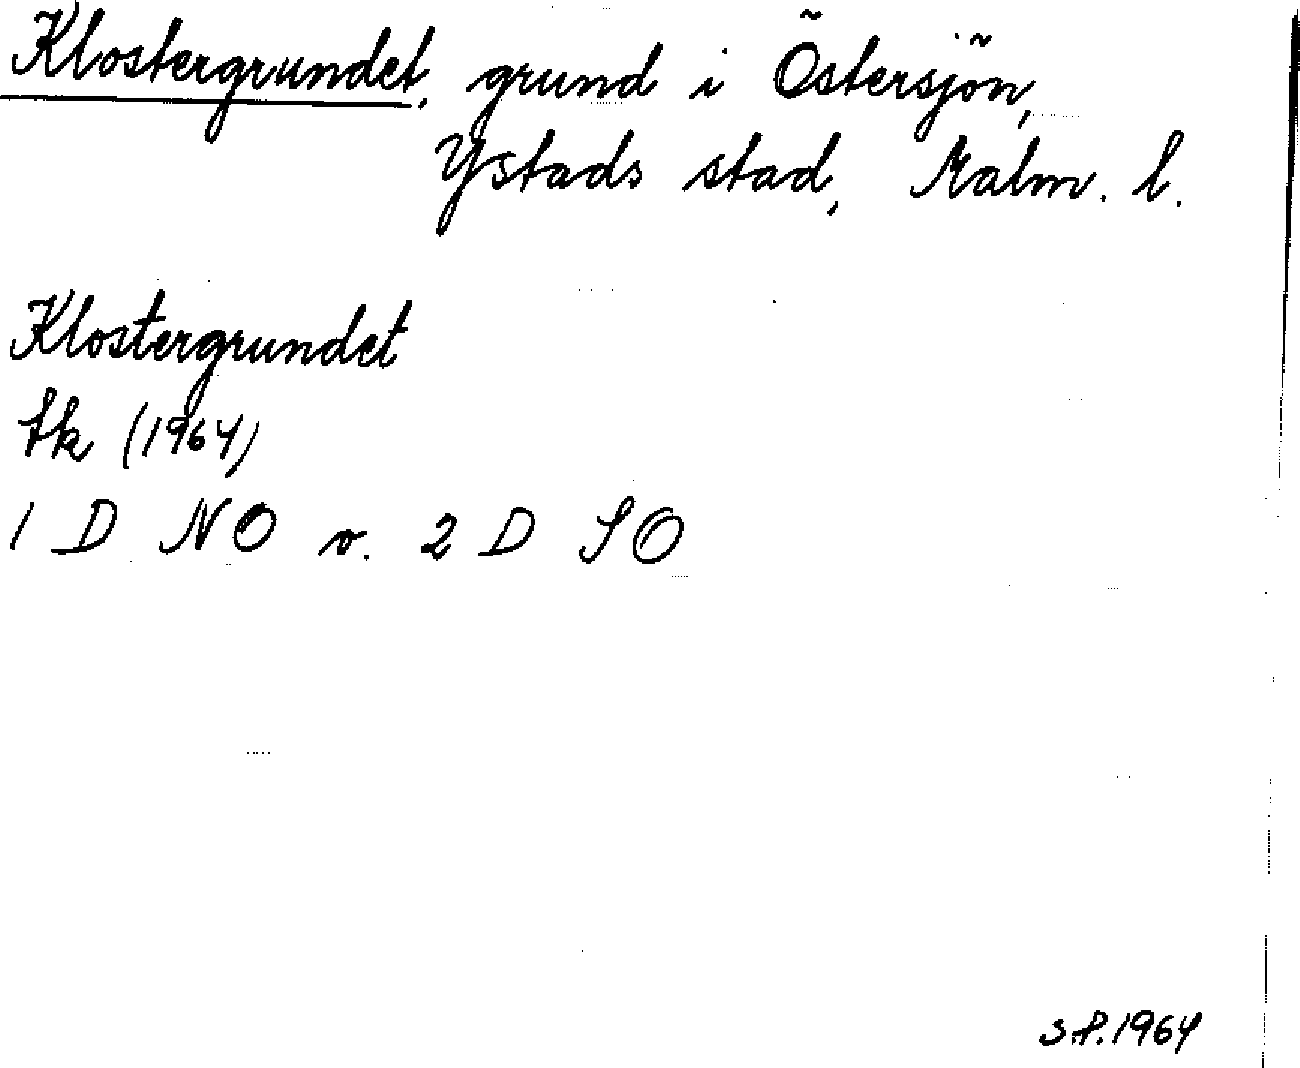 Klostergrundet, grund i Östersjön,
Ystads stad, Malm. l.
Klostergrundet
tk (1964)
1 D NO o. 2 D SO
S.P. 1964